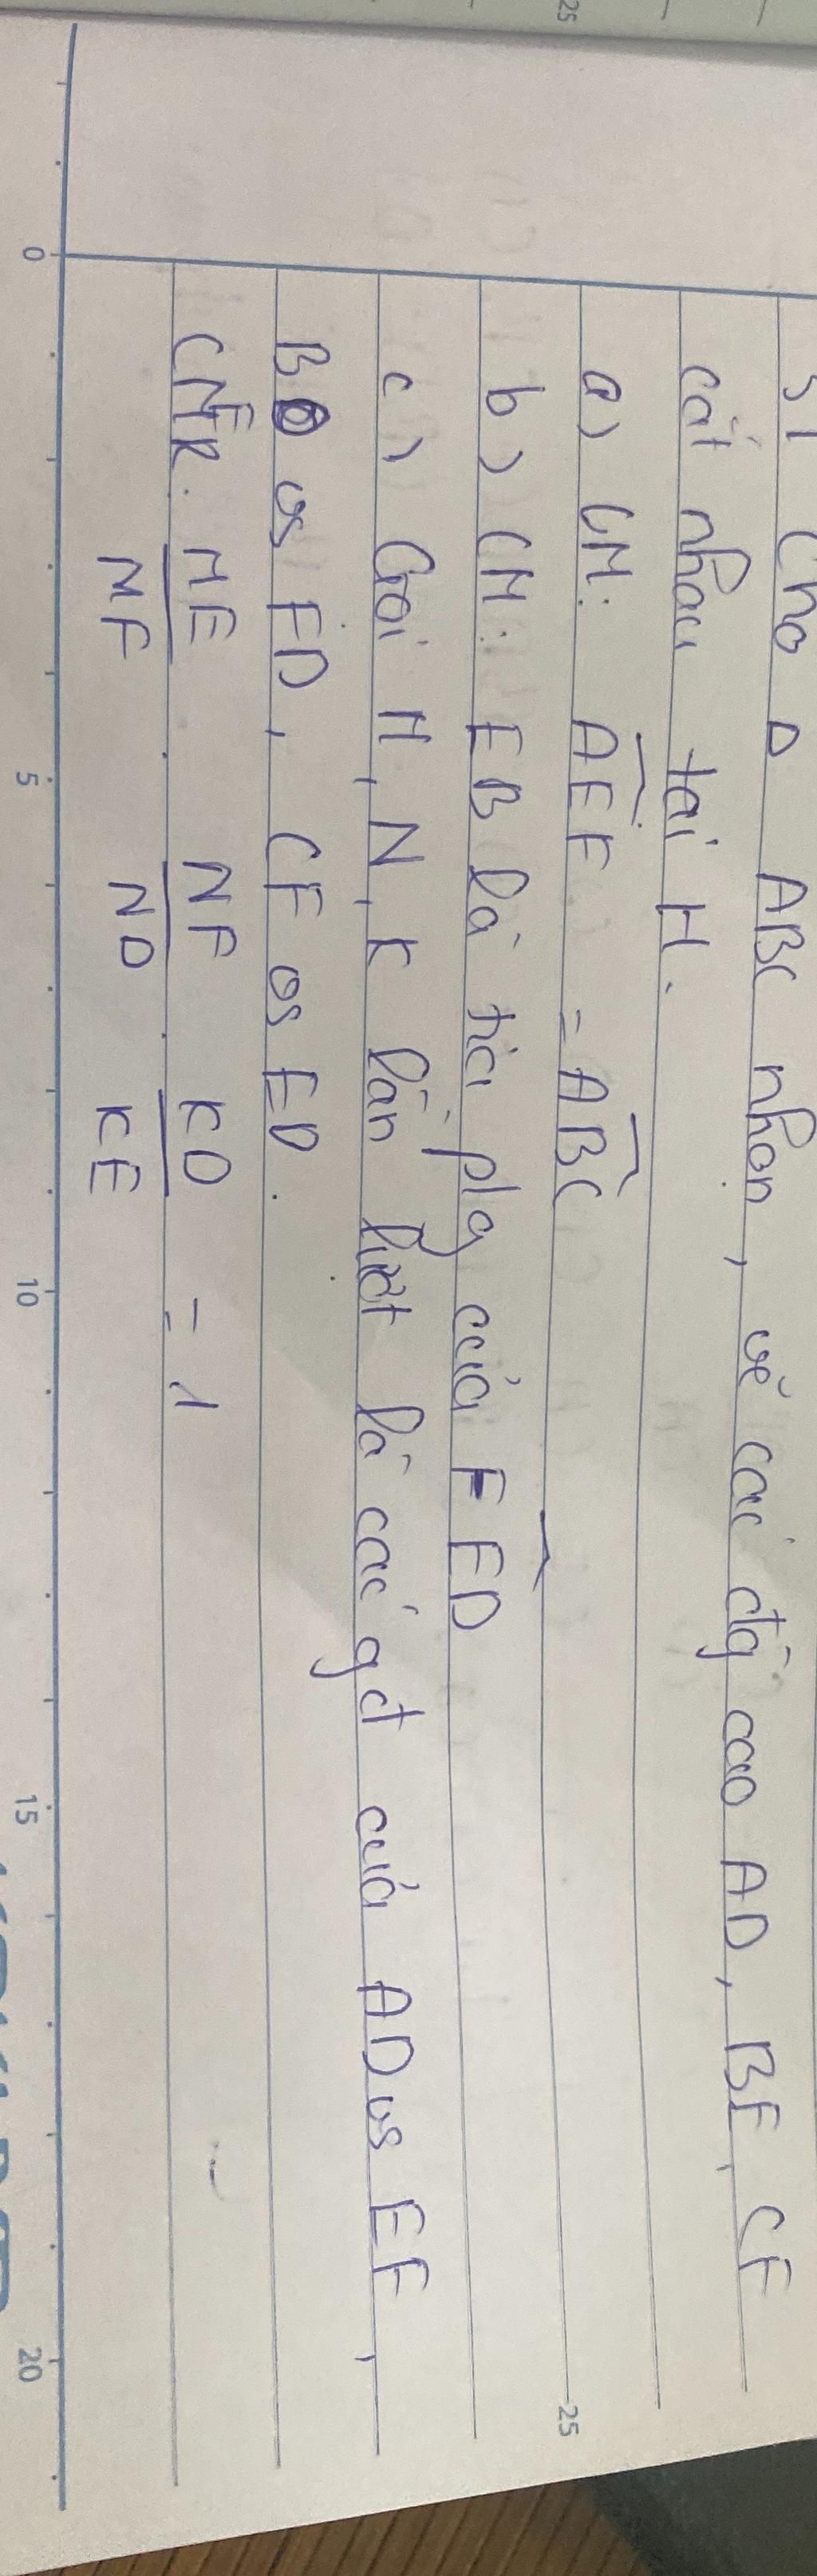 Cho Δ ABC nhọn, vẽ các đg cao AD, BE, CF
cắt nhau tại H.
a) CM: AEF = ABC
b) CM: EB là tia p/g của FED
c) Gọi M, N, K lần lượt là các gđ của AD vs EF,
BE vs FD, CF vs ED.
CMR. ME/MF . NF/ND . KD/KE = 1
0 5 10 15 20
25
25